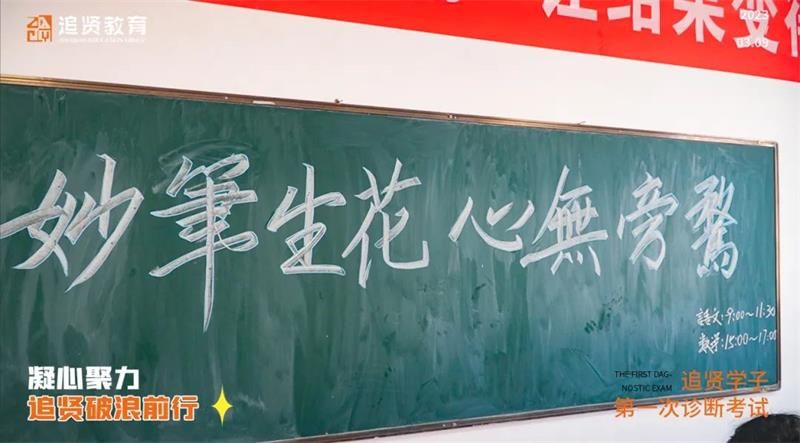 追贤教育
2023
03.09
让结果变
妙筆生花 心無旁騖
語文:9:00~11:30
数学:15:00~17:00
凝心聚力
追贤破浪前行
THE FIRST DAG-
NOSTIC EXAM
追贤学子
第一次诊断考试